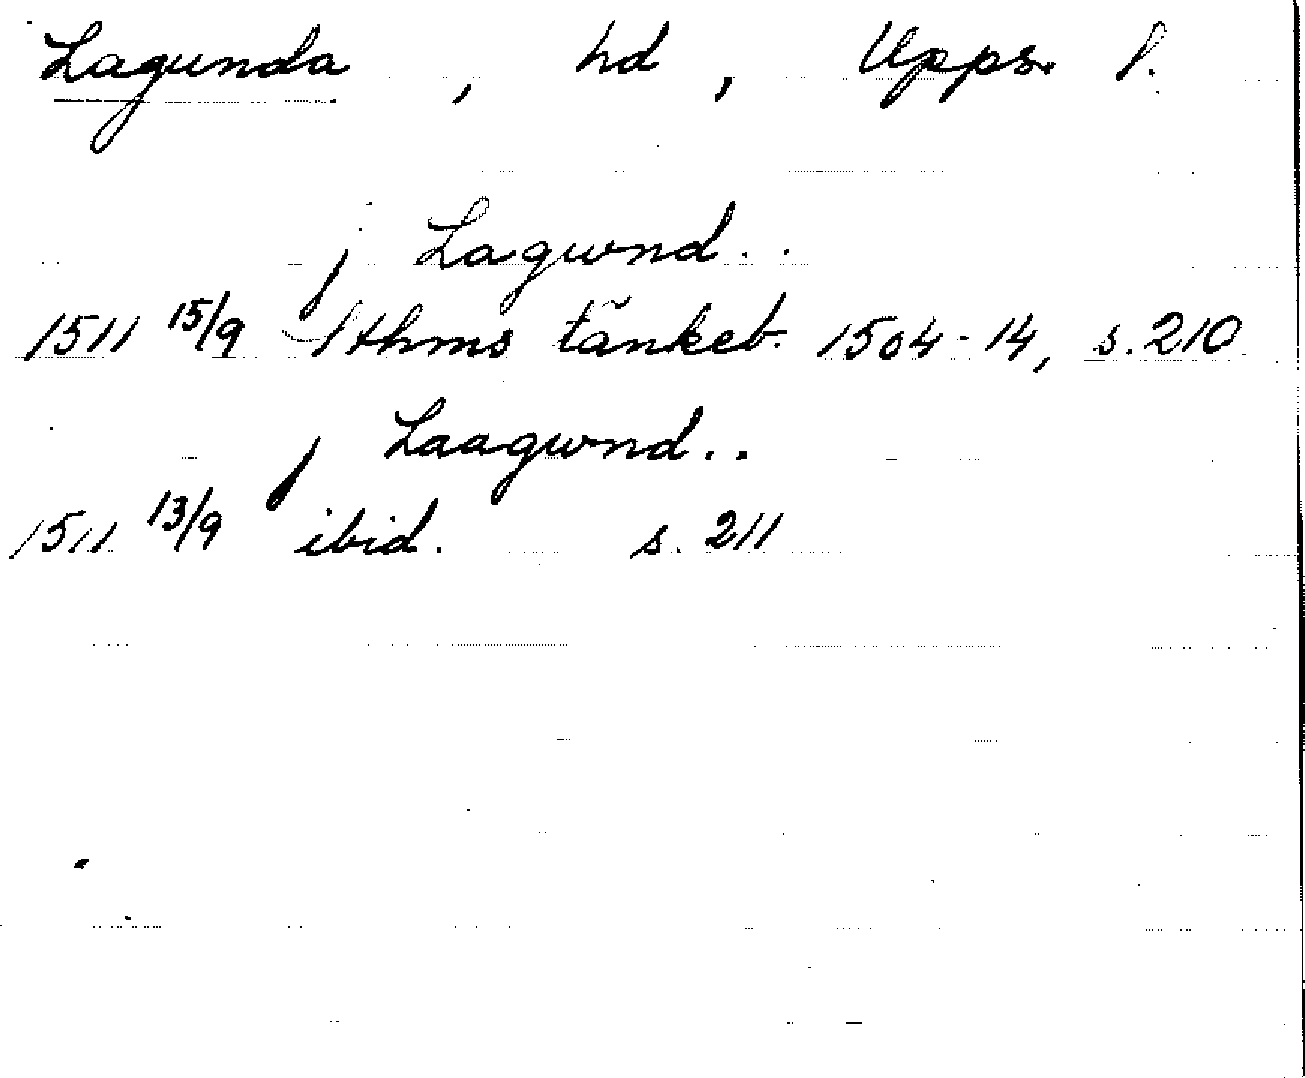 Lagunda, hd, Upps. l.
j Lagwnd..
1511 15/9 Sthms tänkeb. 1504-14, s. 210
j Laagwnd..
1511 13/9 ibid. s. 211